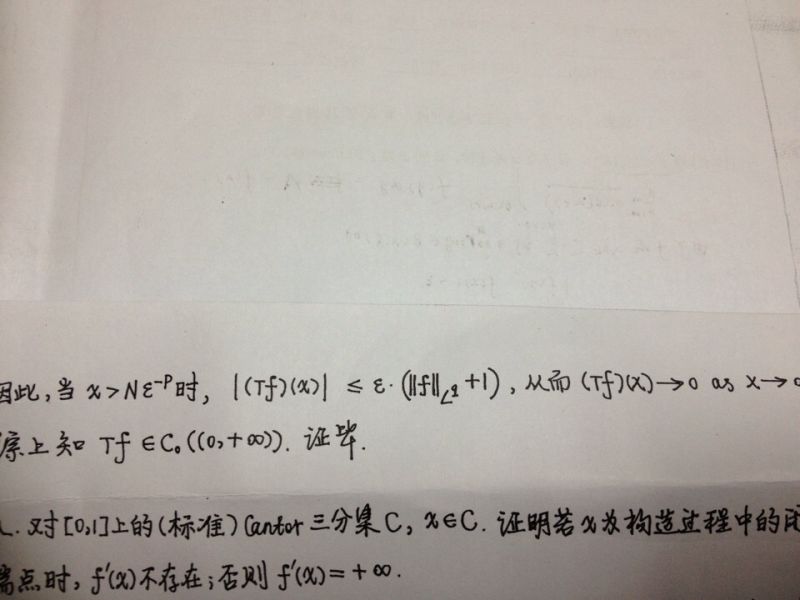 因此,当 x>Nε^{-p}时, |(Tf)(x)| ≤ ε·(‖f‖_{L^q}+1), 从而 (Tf)(x)→0 as x→
综上知 Tf∈C₀((0,+∞)). 证毕.
对[0,1]上的(标准)Cantor三分集C, x∈C. 证明若x为构造过程中的闭
端点时, f'(x)不存在;否则 f'(x)=+∞.